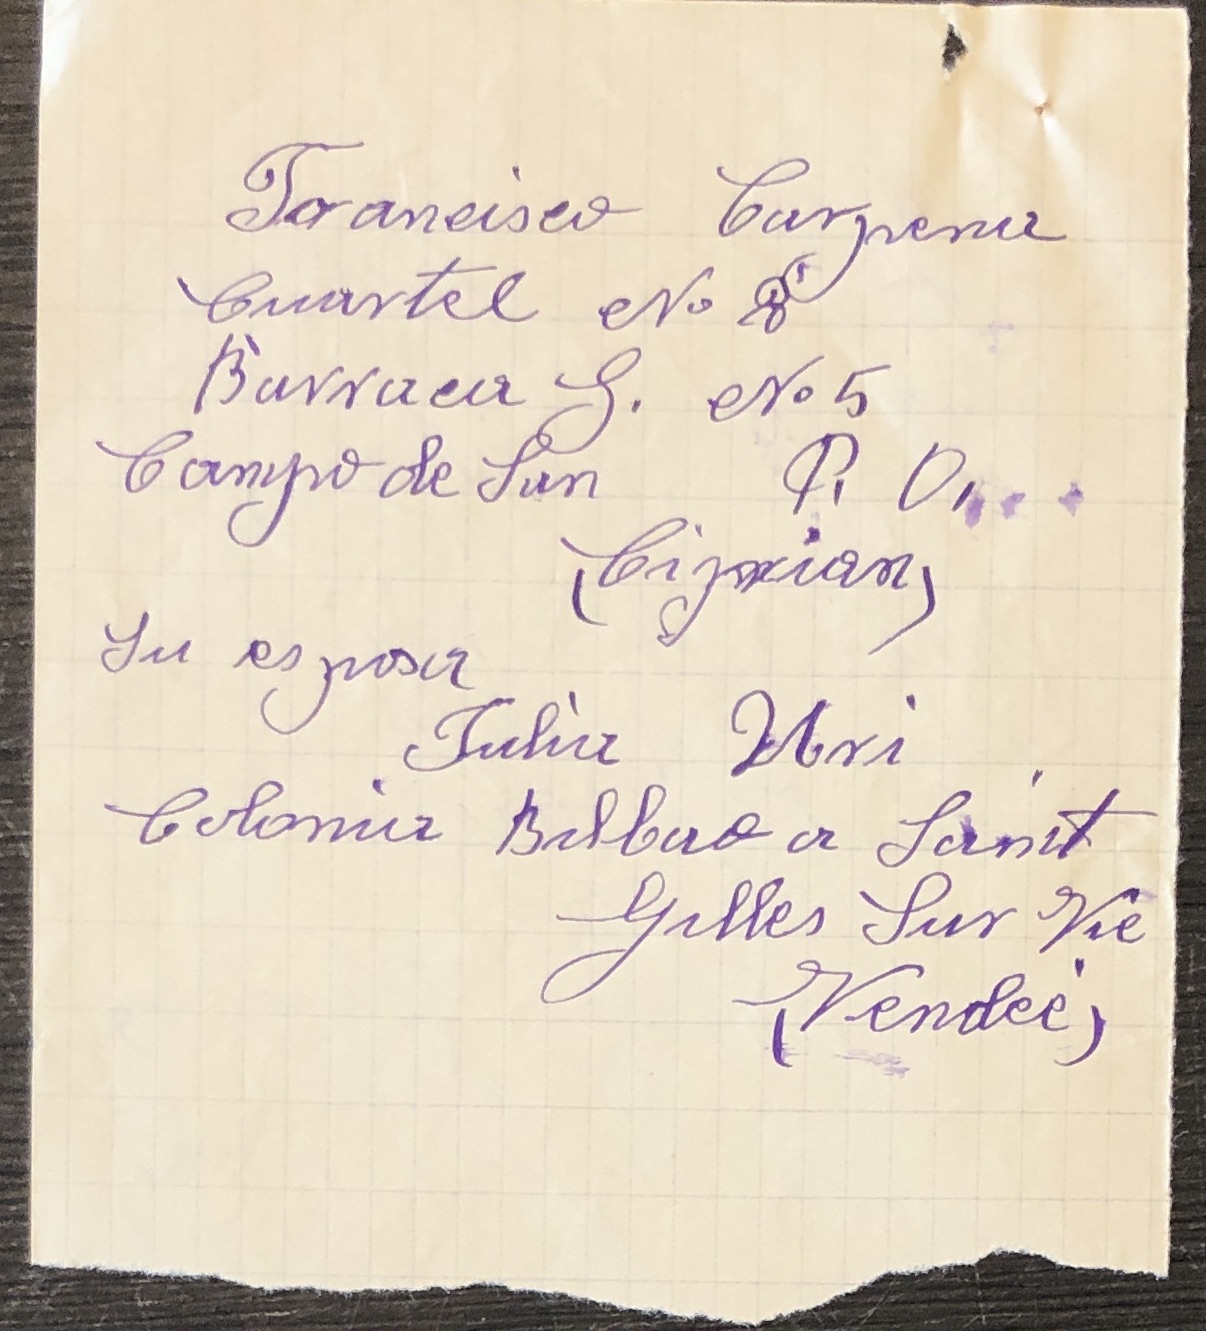 Francisco Carpena
Cuartel No 8
Barraca G. No 5
Campo de San P. O.
(Ciprian)
Su esposa
Julia Uri
Colonia Bilbao a Sanit
Gilles Sur Vie
(Vendeé)